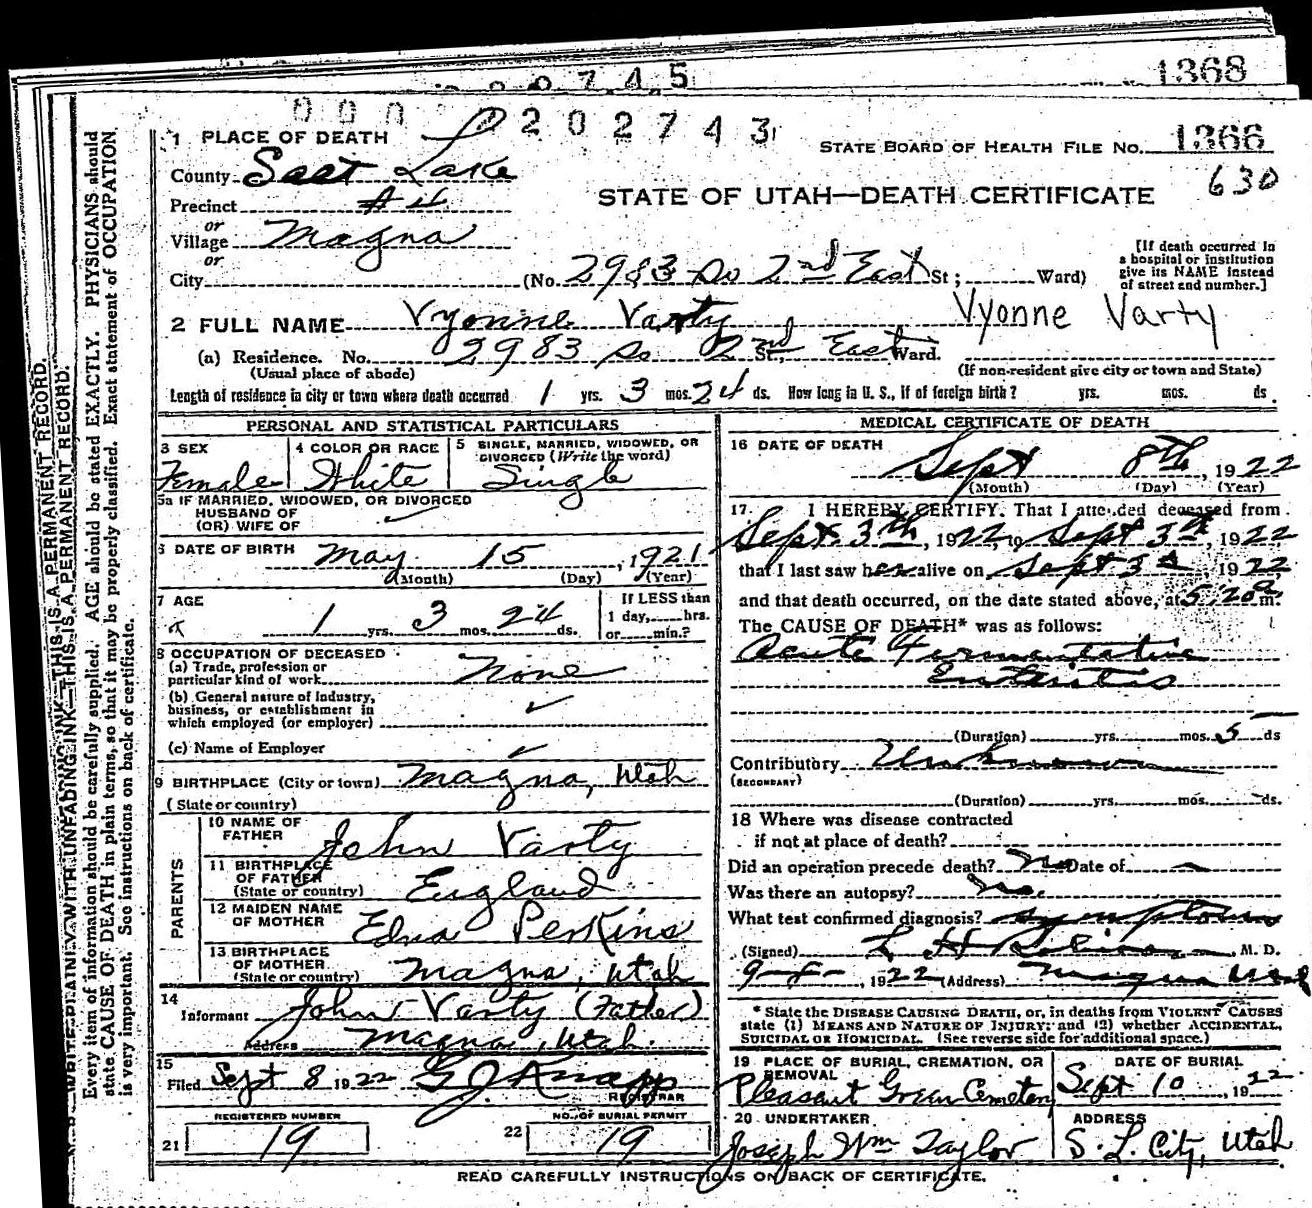 1368
0 0 7 4 5
0 0 0 2 2 0 2 7 4 3
1 PLACE OF DEATH
STATE BOARD OF HEALTH FILE NO. 1366
County Salt Lake
630
STATE OF UTAH—DEATH CERTIFICATE
Precinct #4
or
Village Magna
or
City (No. 2983 So 2nd East St; Ward)
[If death occurred in
a hospital or institution
give its NAME instead
of street and number.]
2 FULL NAME Vyonne Varty Vyonne Varty
(a) Residence. No. 2983 So 2nd St. East Ward.
(Usual place of abode) (If non-resident give city or town and State)
Length of residence in city or town where death occurred 1 yrs. 3 mos. 24 ds. How long in U. S., if of foreign birth? yrs. mos. ds.
PERSONAL AND STATISTICAL PARTICULARS
3 SEX
Female
4 COLOR OR RACE
White
5 SINGLE, MARRIED, WIDOWED, OR
DIVORCED (Write the word)
Single
5a IF MARRIED, WIDOWED, OR DIVORCED
HUSBAND OF
(OR) WIFE OF
6 DATE OF BIRTH May 15, 1921
(Month) (Day) (Year)
7 AGE
1 yrs. 3 mos. 24 ds.
If LESS than
1 day, hrs.
or min.?
8 OCCUPATION OF DECEASED
(a) Trade, profession or
particular kind of work None
(b) General nature of Industry,
business, or establishment in
which employed (or employer)
(c) Name of Employer
9 BIRTHPLACE (City or town) Magna, Utah
(State or country)
PARENTS
10 NAME OF
FATHER John Varty
11 BIRTHPLACE
OF FATHER
(State or country) England
12 MAIDEN NAME
OF MOTHER Edna Perkins
13 BIRTHPLACE
OF MOTHER
(State or country) Magna, Utah
14
Informant John Varty (Father)
Address Magna, Utah.
15
Filed Sept 8 1922 G J Knapp
REGISTRAR
REGISTERED NUMBER
21 19
NO. OF BURIAL PERMIT
22 19
MEDICAL CERTIFICATE OF DEATH
16 DATE OF DEATH
Sept 8th, 1922
(Month) (Day) (Year)
17. I HEREBY CERTIFY. That I attended deceased from
Sept 3th, 1922, to Sept 3th, 1922
that I last saw her alive on Sept 3th 1922,
and that death occurred, on the date stated above, at 5:20 a m.
The CAUSE OF DEATH* was as follows:
Acute Fermentative
Enteritis
(Duration) yrs. mos. 5 ds
Contributory Unknown
(SECONDARY)
(Duration) yrs. mos. ds.
18 Where was disease contracted
if not at place of death?
Did an operation precede death? No Date of
Was there an autopsy? No.
What test confirmed diagnosis? Symptoms
(Signed) L H M. D.
9-8-, 1922 (Address) Magna Utah
* State the DISEASE CAUSING DEATH, or, in deaths from VIOLENT CAUSES
state (1) MEANS AND NATURE OF INJURY; and (2) whether ACCIDENTAL,
SUICIDAL OR HOMICIDAL. (See reverse side for additional space.)
19 PLACE OF BURIAL, CREMATION, OR
REMOVAL
Pleasant Green Cemetery
DATE OF BURIAL
Sept 10, 1922
20 UNDERTAKER
Joseph Wm Taylor
ADDRESS
S. L. City, Utah
READ CAREFULLY INSTRUCTIONS ON BACK OF CERTIFICATE.
N. B. WRITE PLAINLY WITH UNFADING INK—THIS IS A PERMANENT RECORD.
Every item of information should be carefully supplied. AGE should be stated EXACTLY. PHYSICIANS should
state CAUSE OF DEATH in plain terms, so that it may be properly classified. Exact statement of OCCUPATION
is very important. See instructions on back of certificate.